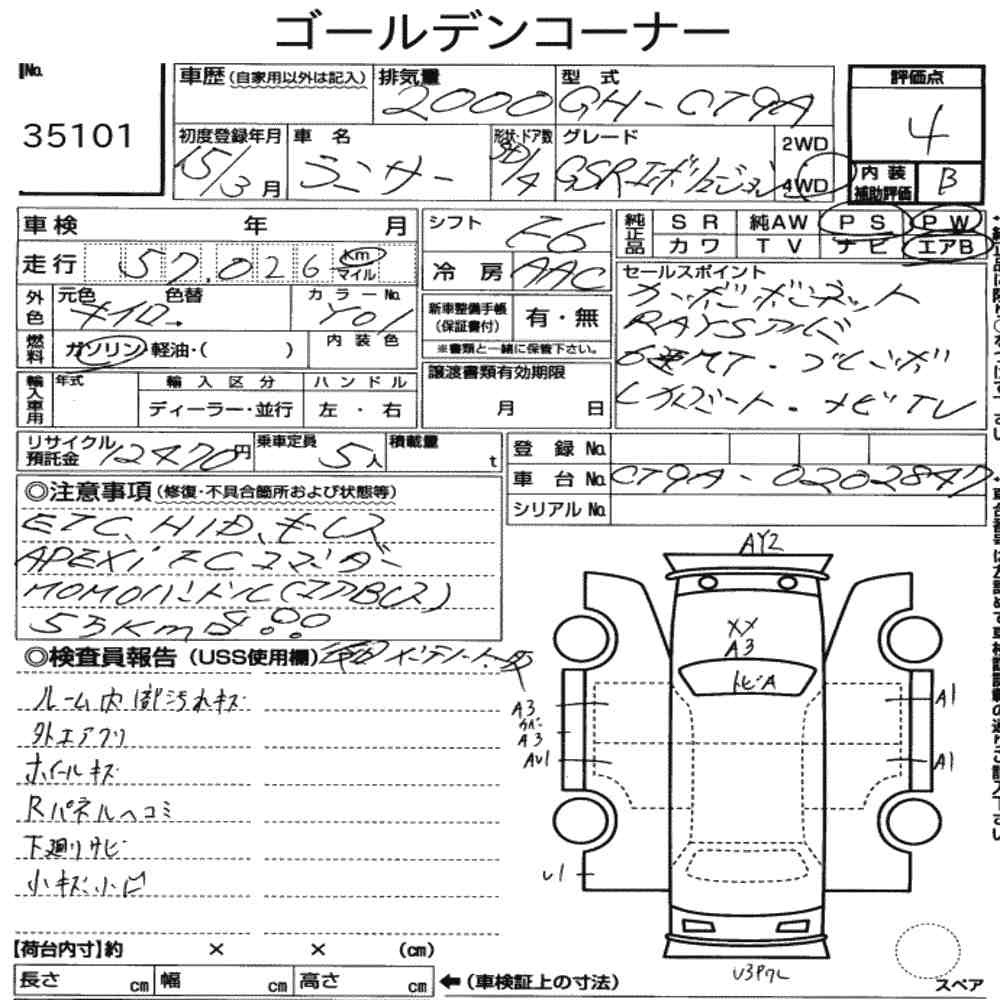 ゴールデンコーナー
No.
35101
車歴(自家用以外は記入)
排気量
2000
型 式
GH-CT9A
評価点
4
初度登録年月
15/3月
車 名
ランサー
形状・ドア数
SD/4
グレード
GSRエボリューション
2WD
4WD
内装
補助評価
B
車検 年 月
シフト
F6
純正品
SR 純AW PS PW
カワ TV ナビ エアB
走行 57,026 Km
マイル
冷房
AAC
セールスポイント
カーボンボンネット
RAYSアルミ
6速MT.ブレンボ
レカロシート.ナビTV
外色
元色 色替
キイロ
カラーNo.
Y01
新車整備手帳
(保証書付)
有・無
※書類と一緒に保管下さい。
燃料
ガソリン・軽油・( )
内装色
輸入車用
年式
輸入区分
ディーラー・並行
ハンドル
左・右
譲渡書類有効期限
月 日
リサイクル
預託金
12470円
乗車定員
5人
積載量
t
登録No.
車台No.
CT9A-0202847
シリアルNo.
◎注意事項(修復・不具合箇所および状態等)
ETC、HID、
APEXi
MOMOハンドル(エアBレス)
53Km
◎検査員報告(USS使用欄)
ルーム内 汚れキズ
外エアフリ
ホイールキズ
Rパネルヘコミ
下廻りサビ
小キズ小凹
AY2
XX
A3
トビA
A3
A3
AU1
U1
A1
A1
スペア
【荷台内寸】約 × × (cm)
長さ cm 幅 cm 高さ cm
←(車検証上の寸法)